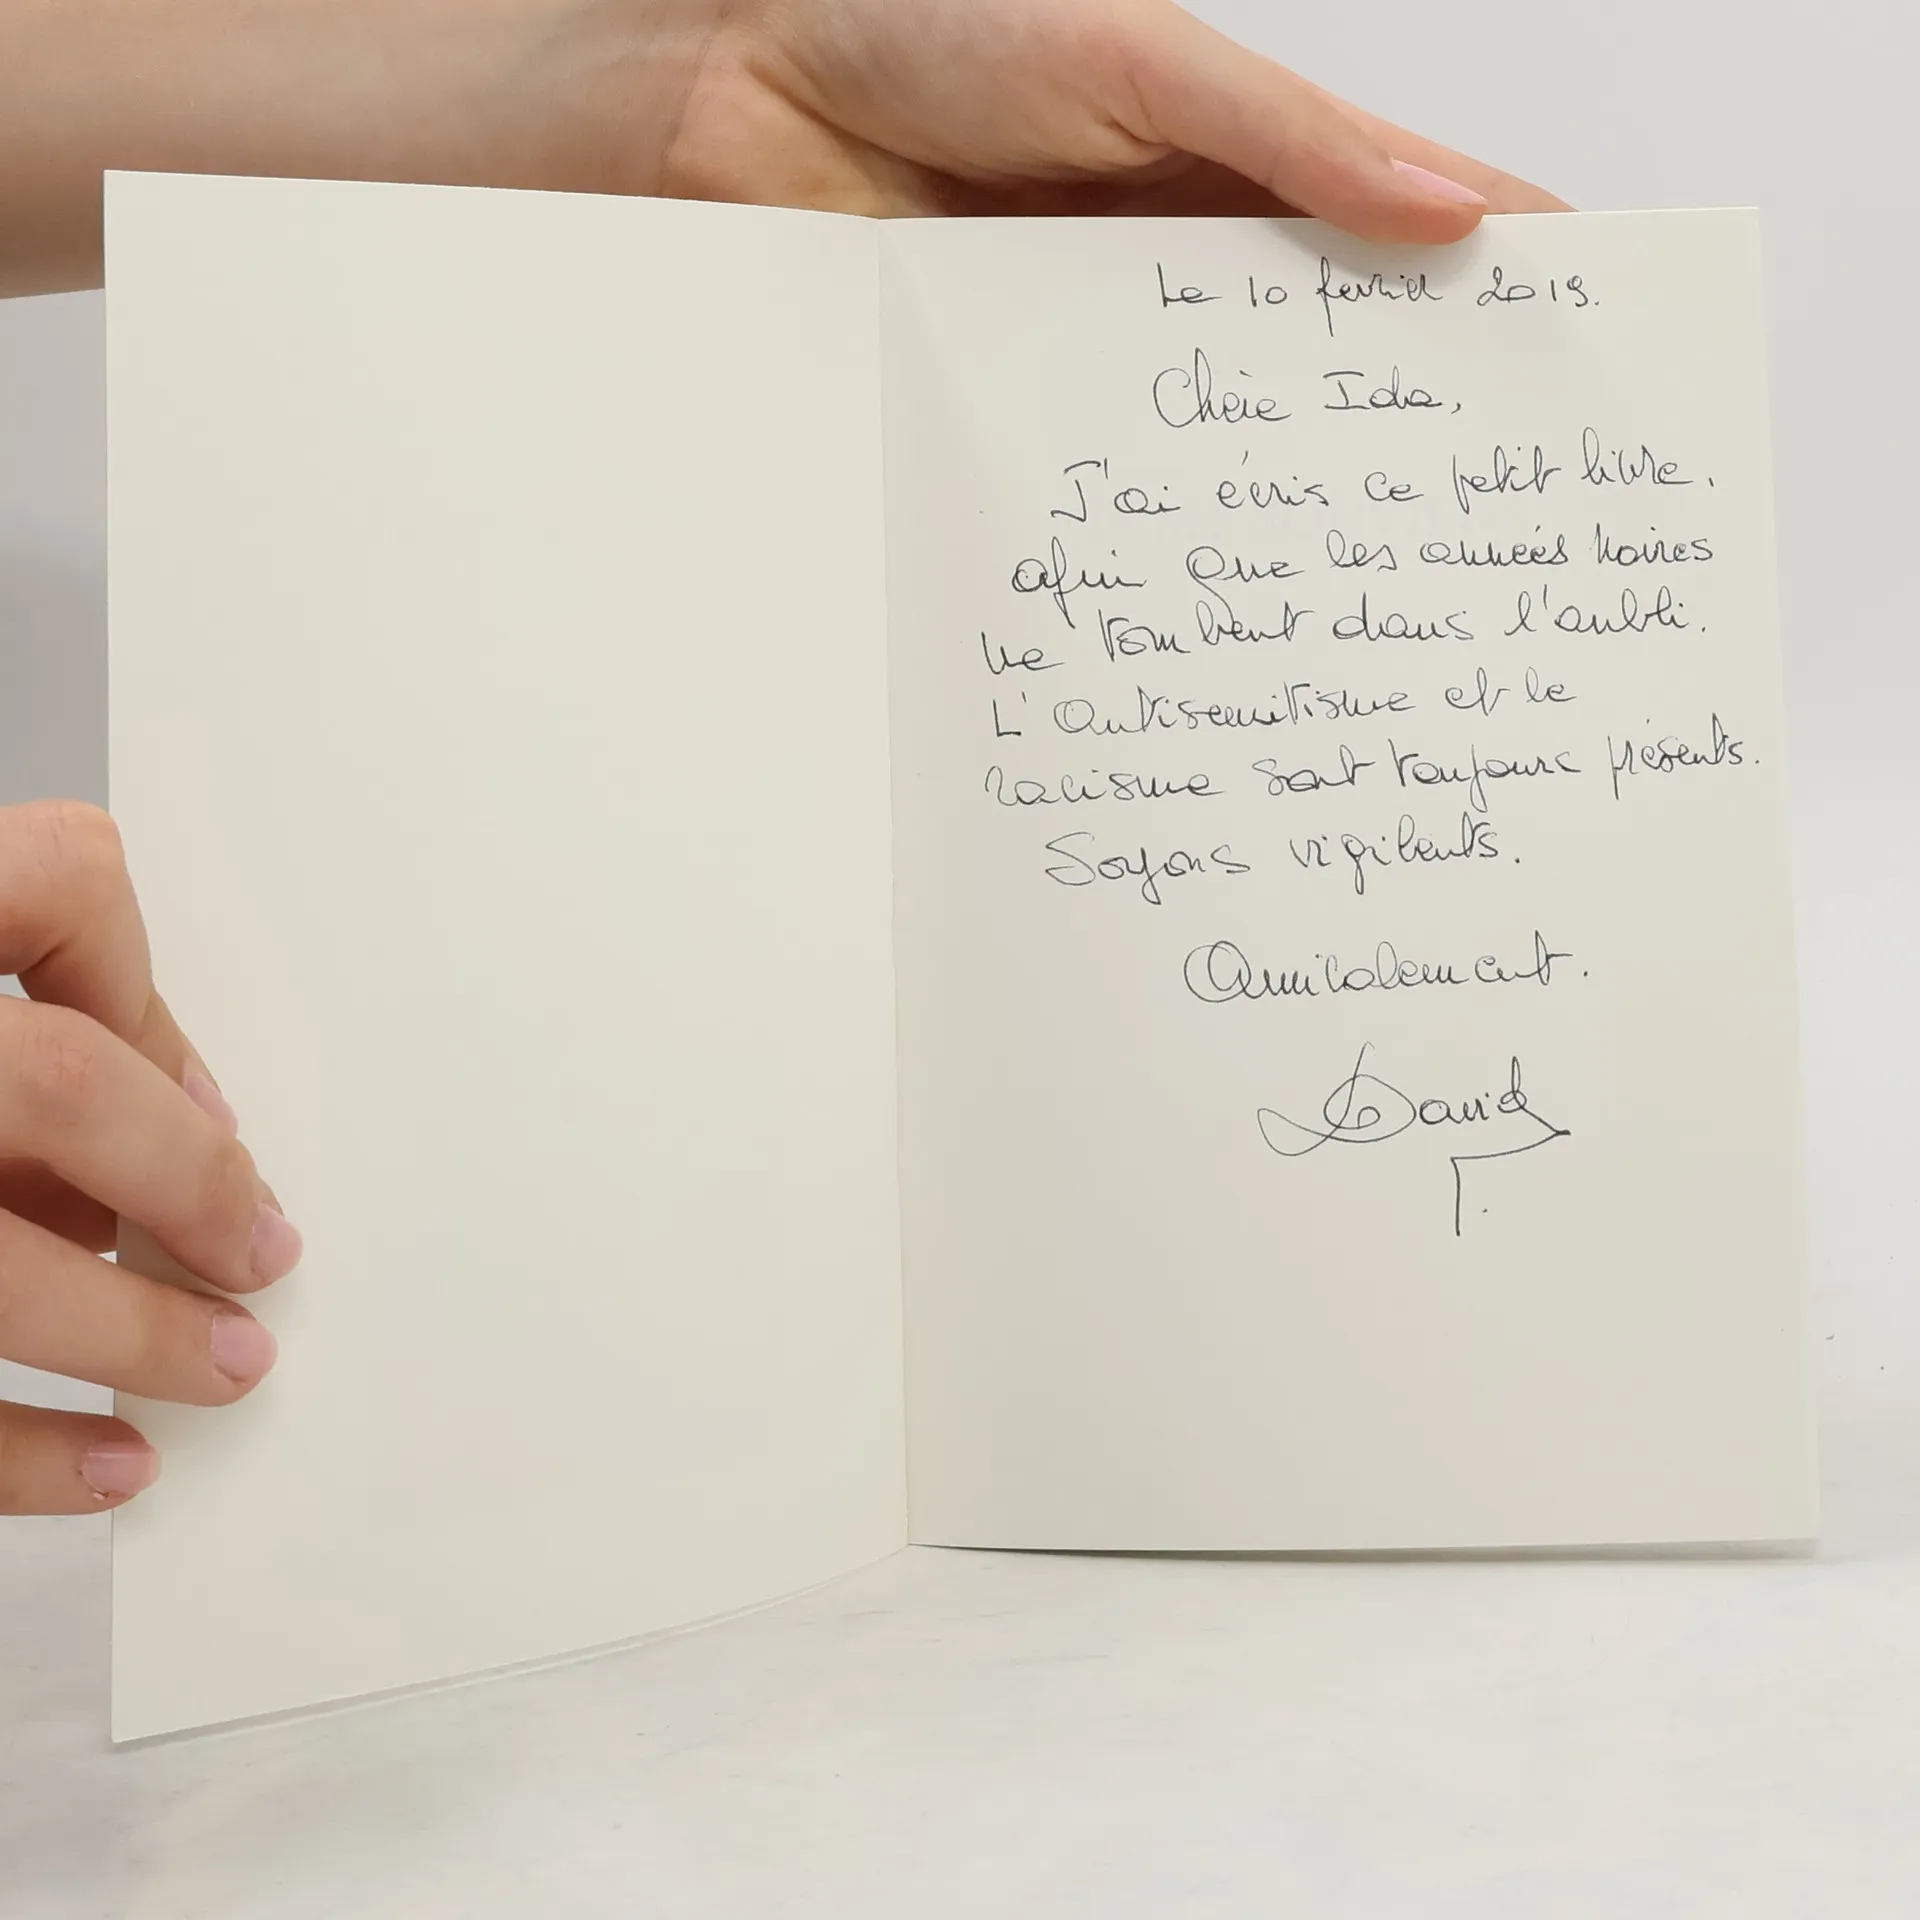 Le 10 fevrier 2019.
Chère Ida,
J'ai écris ce petit livre.
afin que les années noires
ne tombent dans l'oubli.
L'Antisemitisme et le
racisme sont toujours présents.
Soyons vigilants.
Amicalement.
David
T.